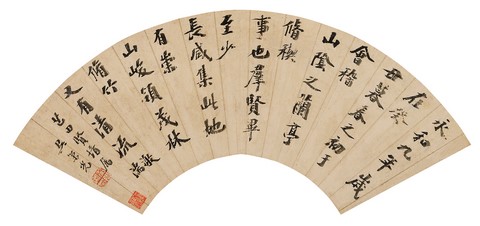 永和九年歲
在癸
丑暮春之初于
會稽
山陰之蘭亭
脩禊
事也羣賢畢
至少
長咸集此地
有崇
山峻領茂林
脩竹
又有清流激湍
田賢
吳榮光